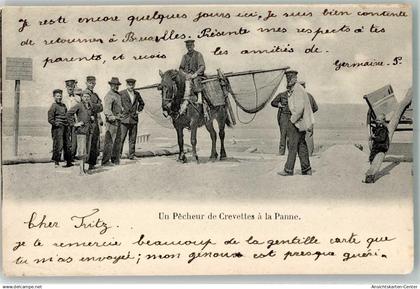 Je reste encore quelques jours ici, je suis bien contente
de retourner à Bruxelles. Présente mes respects à tes
parents, et reçois les amitiés de
Germaine. S.
Un Pêcheur de Crevettes à la Panne.
Cher Fritz.
Je te remercie beaucoup de la gentille carte que
tu m'as envoyée; mon genoux est presque guéri.
Ansichtskarten-Center.de